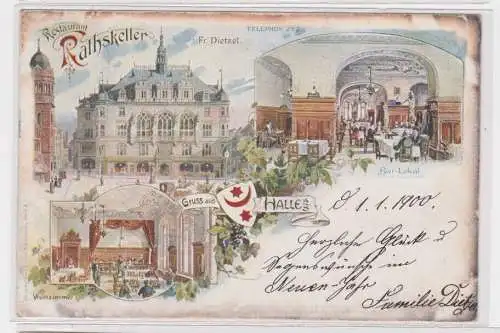 Restaurant
Rathskeller
Fr. Dietzel.
TELEPHON
Bier-Lokal.
Gruss aus
HALLE a/S
Weinzimmer
d 1.1.1900.
Herzliche Glück u
Segenswünsche im
Neuen-Jahr
Familie